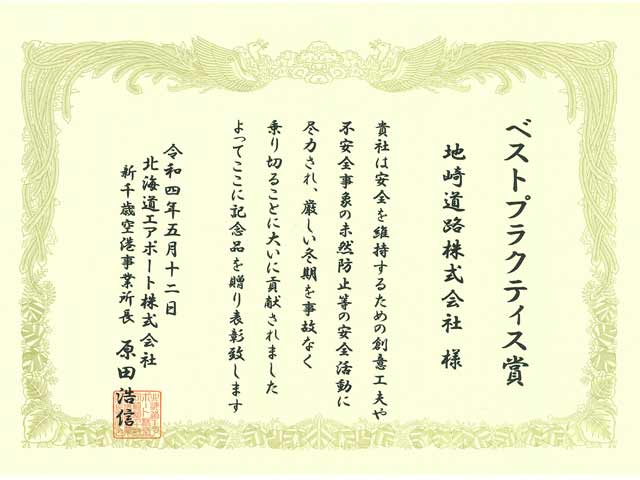 ベストプラクティス賞
地崎道路株式会社 様
貴社は安全を維持するための創意工夫や
不安全事象の未然防止等の安全活動に
尽力され、厳しい冬期を事故なく
乗り切ることに大いに貢献されました
よってここに記念品を贈り表彰致します
令和四年五月十二日
北海道エアポート株式会社
新千歳空港事業所長 原田浩信